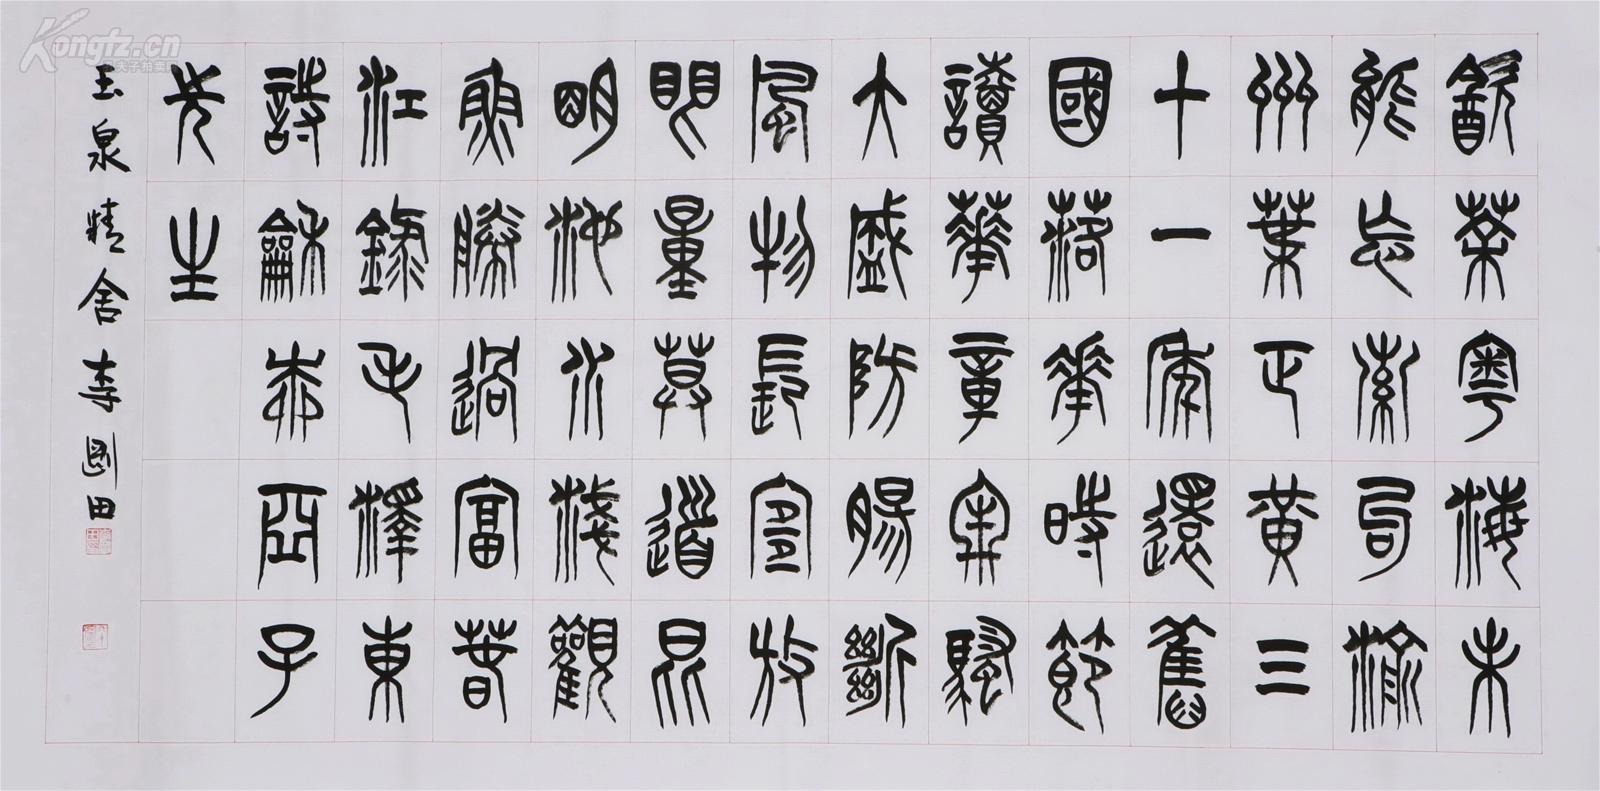 飲茶粵海未
能忘索句渝
州葉正黃三
十一年還舊
國落花時節
讀華章牢騷
大盛防腸斷
風物長宜放
眼量莫道昆
明池水淺觀
魚勝過富春
江錄毛澤東
詩龢柳亞子
先生
玉泉精舍李剛田
Kongfz.cn
孔夫子拍卖网